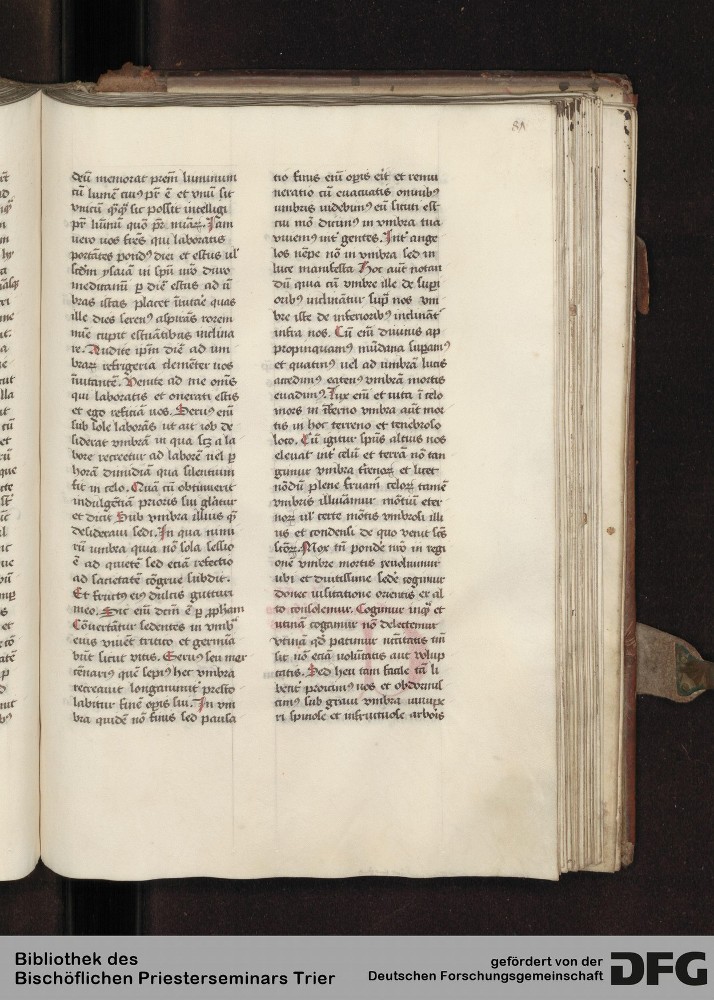 8Λ
deū memorat prēm luminum
cū lumē cuiꝰ pr̄ ē et vnū sit
vnicū qͥqͥ sic possit intelligi
Jam
uero uos frēs qui laboratis
portātes pondꝰ diei et estus ul'
scdm ysaiā in spū suo duro
meditamī p diē estus ad ū
bras istas placet īuitare quas
ille dies serenꝰ aspirās rorem
cupit estuātibus inclina
re. Audite ipm diē ad um
refrigeria clemēter uos
īuitantē. Venite ad me om̄s
qui laboratis et onerati estis
et ego reficiā uos. Seruꝰ em̄
sub sole laborās ut ait iob de
siderat vmbrā in qua scz a la
bore recreetur ad laborē uel p
horā dimidiā qua silentium
fit in celo. Quā cū obtinuerit
indulgētiā prioris sui glātur
et dicit Sub vmbra illius qͣ
desideraui sedi. In qua nimi
rū umbra quia nō sola sessio
ē ad quietē sed etiā refectio
ad sacietatē cōgrue subdit.
Et fructꝰ eiꝰ dulcis gutturi
meo. Sic em̄ dcm̄ ē p ꝓpham
Cōuertātur sedentes in vmbͣ
eius viuēt tritico et germīa
būt sicut vitis. Seruꝰ seu mer
cēnariꝰ quē sepiꝰ hec vmbra
recreauit longanimit̄ presto
labitur finē opis sui. In vm
bra quidē nō finis sed pausa
tio finis em̄ opis erit et remu
neratio cū euacuatis omnibꝰ
umbris uidebimꝰ eū sicuti est
cui mō dicimꝰ in vmbra tua
viuemꝰ int̄ gentes. Int̄ ange
los nēpe nō in vmbra sed in
luce manifesta. Hoc aūt notan
dū quia cū vmbre ille de supi
oribꝰ inclinātur sup nos vm
bre iste de inferioribꝰ inclināt̄
infra nos. Cū em̄ diuinis ap
propinquamꝰ mūdana supamꝰ
et quatinꝰ uel ad umbrā lucis
accedimꝰ eatenꝰ vmbrā mortis
euadimꝰ. Lux em̄ et uita ī celo
mors in īferno vmbra aūt mor
tis in hoc terreno et tenebroso
loco. Cū igitur spūs altius nos
eleuat int̄ celū et terrā nō tan
gimur vmbra et licet
nōdū plene tamē
vmbris illuīamur mōtiū eter
ul' certe mōtis vmbrosi illi
us et condensi de quo venit scs
Mox tn̄ ponde nr̄o in regi
onē vmbre mortis reuoluimur
ubi et diutissime sede cogimur
donec uisitatione orientis ex al
to consolemur. Cogimur inqͣ et
utinā cogamur nō delectemur
vtinā qd̄ patimur nccītatis tm̄
sit nō etiā volūtatis aut volup
tatis. Sed heu tam facile tā li
bent̄ proicimꝰ nos et obdormis
cimꝰ sub graui vmbra iuuipe
ri spinose et infructuose arboris
Bibliothek des
Bischöflichen Priesterseminars Trier
gefördert von der
Deutschen Forschungsgemeinschaft
DFG